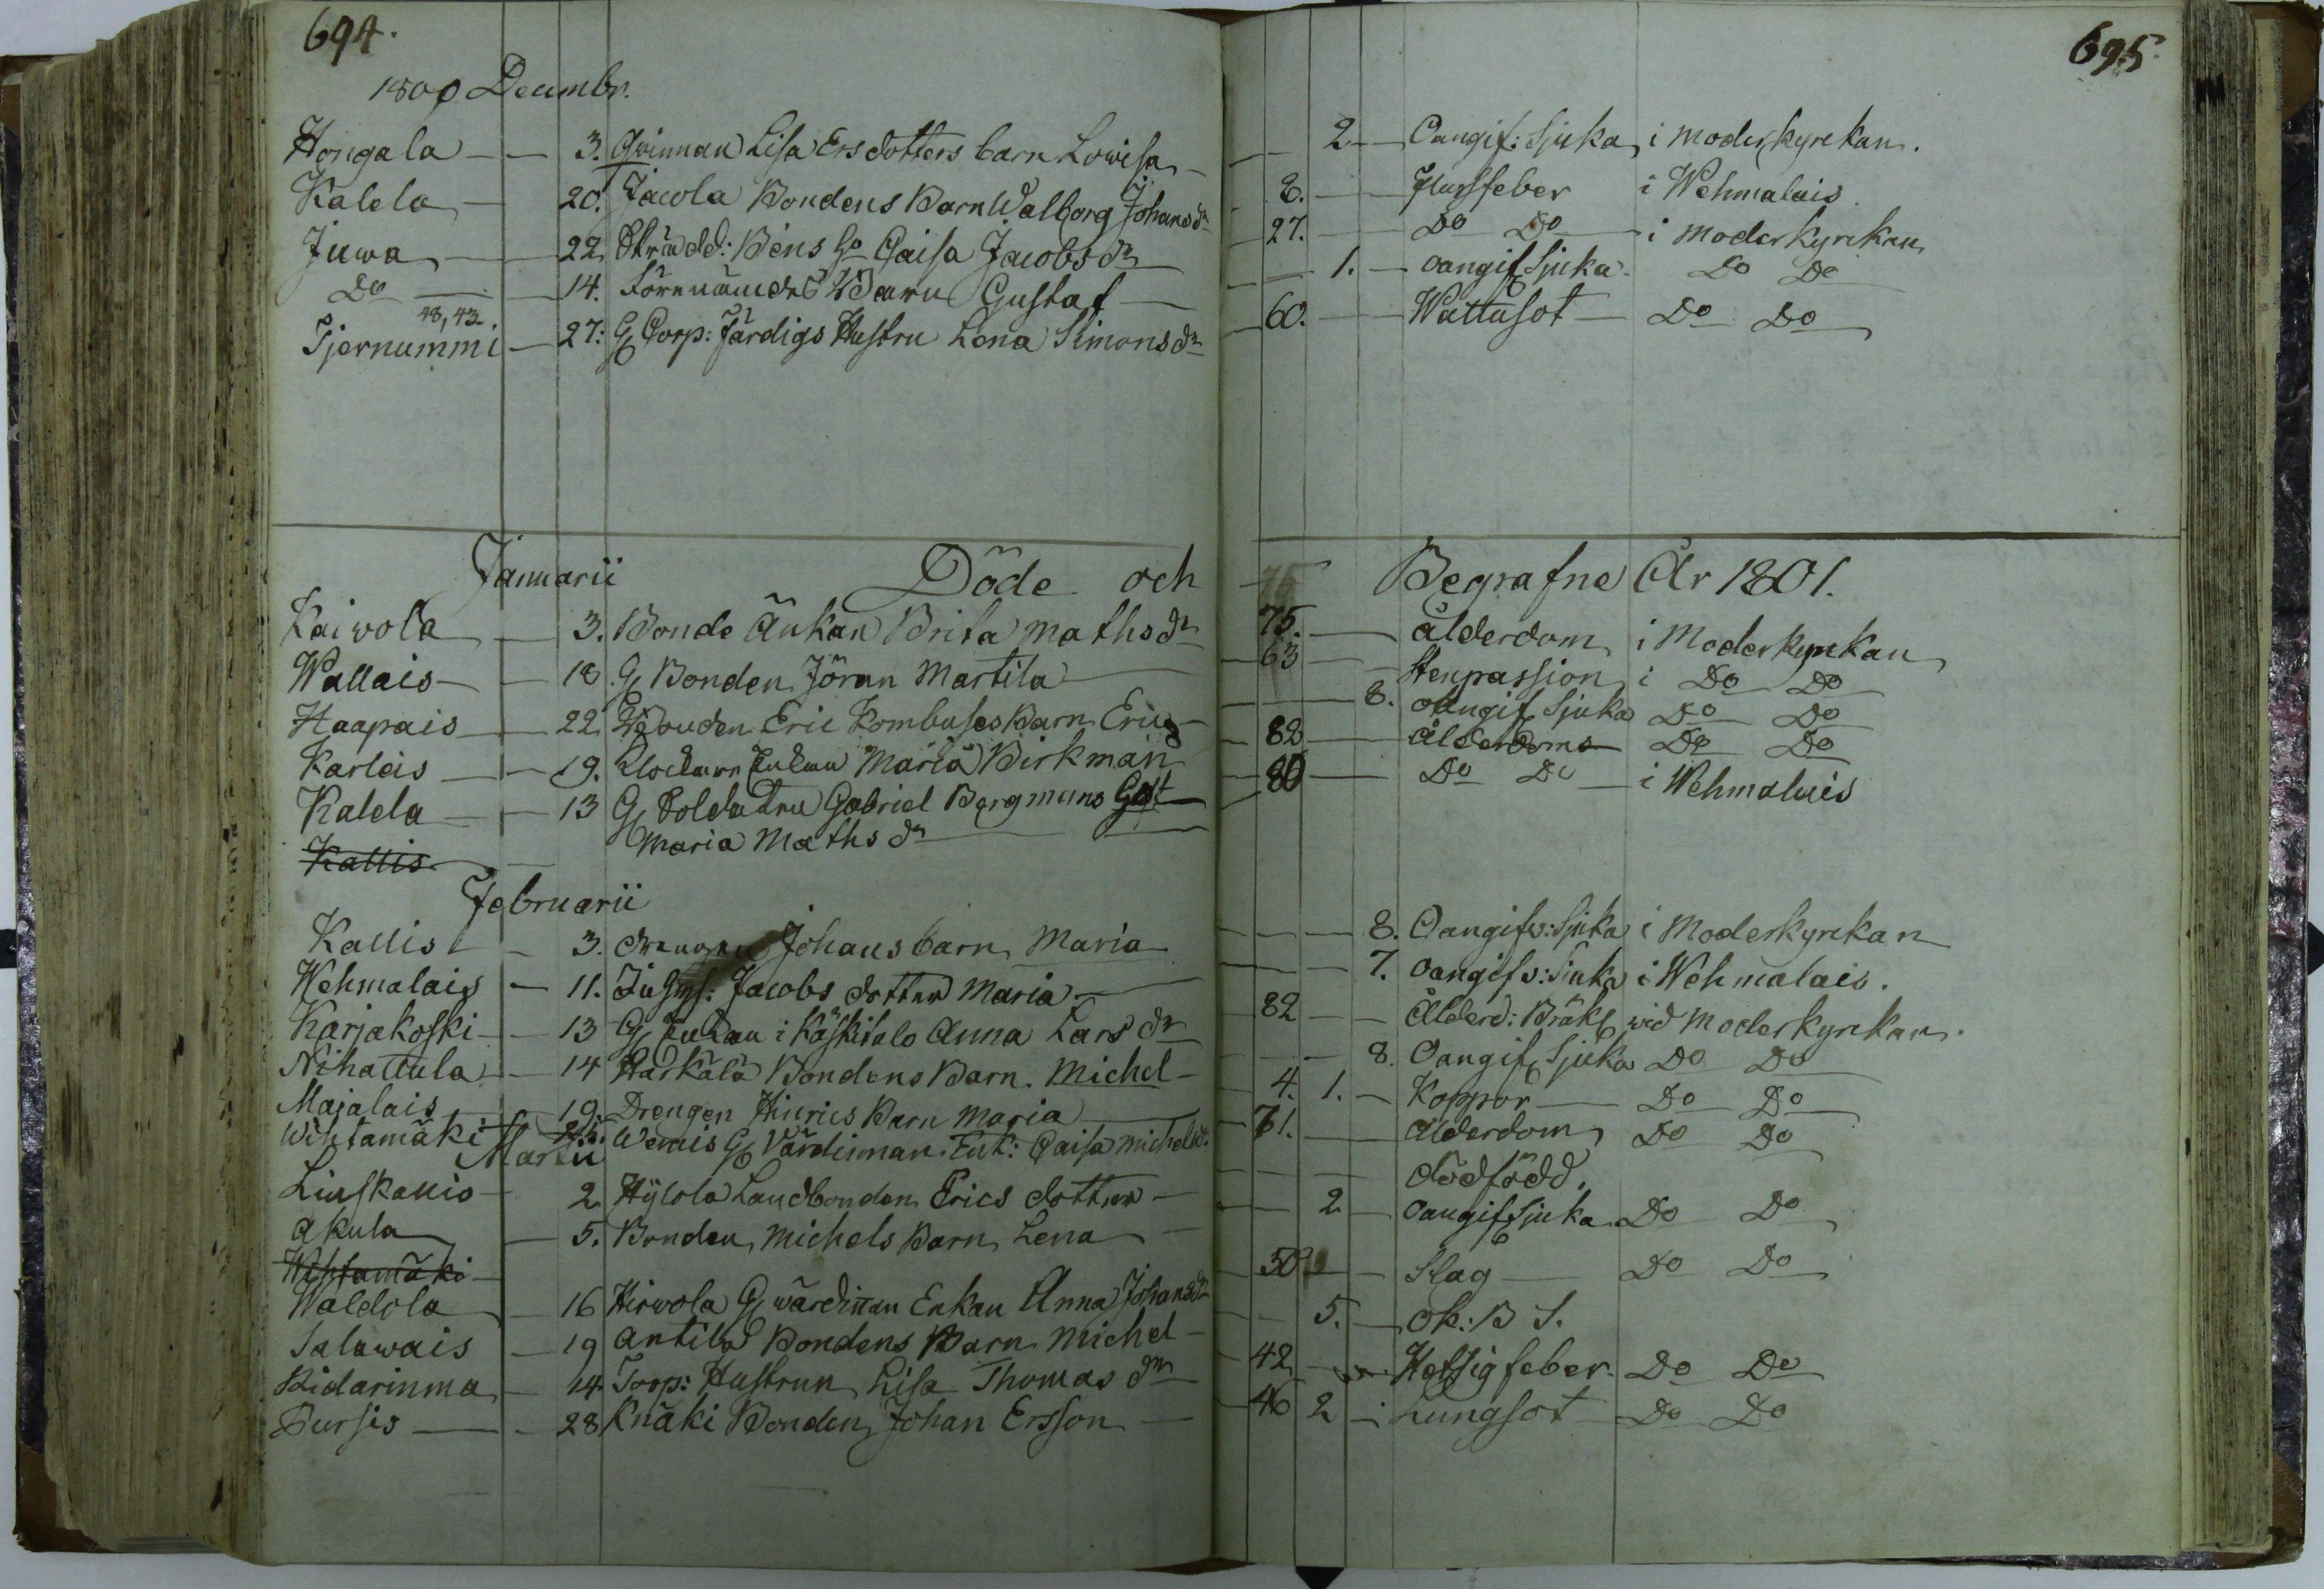 694.
1800 Decembr.
Hongala — — 3. Qvinnan Lisa Ersdotters barn Lowisa —
Kalela — 20. Jacola Bondens Barn Walborg Johansdr
Juwa — 22 Skrädd: Bens Ho Caisa Jacobsdr
Do — 14. Förenämdes Barn Gustaf —
48, 43.
Tjernummi — 27. G Corp: Färdigs Hustru Lena Simonsdr
Januarii Döde och
Kaiwola — 3. Bonde Änkan Brita Mathsdr
Wallais — 18. G Bonden Jöran Martila
Haapais — 22 Bonden Eric Rombuses Barn Eric —
Karleis — 19. Klockare Enkan Maria Birkman
Kalela — 13 G Soldatens Gabriel Bergmans
Maria Mathsdr
Kallis
Februarii
Kallis — 3. drengen Johans barn Maria
Wehmalais — 11. Jacobs dotter Maria —
Karjakoski — 13 G Enkan i Käskitalo Anna Larsdr
Nihattula — 14 Härkälä Bondens Barn Michel —
Majalais 19. Drengen Hinrics Barn Maria
Wihtamäki Wemis G Värdinnan Enk: Caisa Michelsdr
Martii
Linskallio — 2 Hylola Landbonden Erics dotter —
Akula — 5. Bonden Michels Barn Lena —
Wihtamäki —
Waldola — 16 Hirwola G wärdinnan Enkan Anna Johansdr
Salawais — 19 Antila Bondens Barn Michel —
Kidarinma — 14 Torp: Hustrun Lisa Thomasdr
Pursis — — 28 Knäki Bonden Johan Ersson —
695.
2 — Oangif: Sjuka i moderkyrkan.
8. — Flussfeber i Wehmalais
27. — Do Do — i moderkyrkan
1. — oangif Sjuka. Do Do
60. — Wattusot — Do Do
75 Begrafne År 1801.
75. — ålderdom i Moderkyrkan
63 — Stenpassion i Do Do
8. oangif Sjuka Do Do
82 — Ålderdoms Do Do
80 — Do Do — i Wehmalais
8. Oangifv: Sjuka i Moderkyrkan
7. oangifv: Sjuka i Wehmalais.
82 — Ålderd: Bräkl wid Moderkyrkan.
8. Oangif Sjuka Do Do
4. 1. — Koppor — Do Do
71. — ålderdom Do Do
dödfödd.
2 — oangif Sjuka Do Do
50 — Slag — Do Do
5. — ok: B S.
42 — Hetsig feber. Do Do
46 2 — Lungsot — Do Do